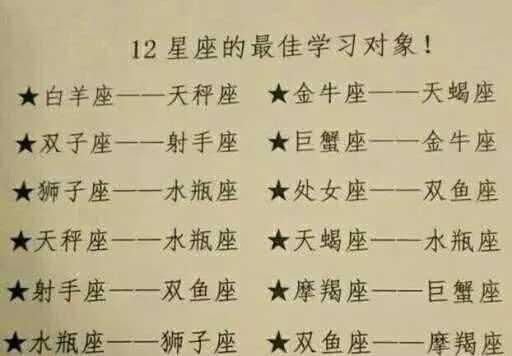 12星座的最佳学习对象！
★白羊座——天秤座 ★金牛座——天蝎座
★双子座——射手座 ★巨蟹座——金牛座
★狮子座——水瓶座 ★处女座——双鱼座
★天秤座——水瓶座 ★天蝎座——水瓶座
★射手座——双鱼座 ★摩羯座——巨蟹座
★水瓶座——狮子座 ★双鱼座——摩羯座